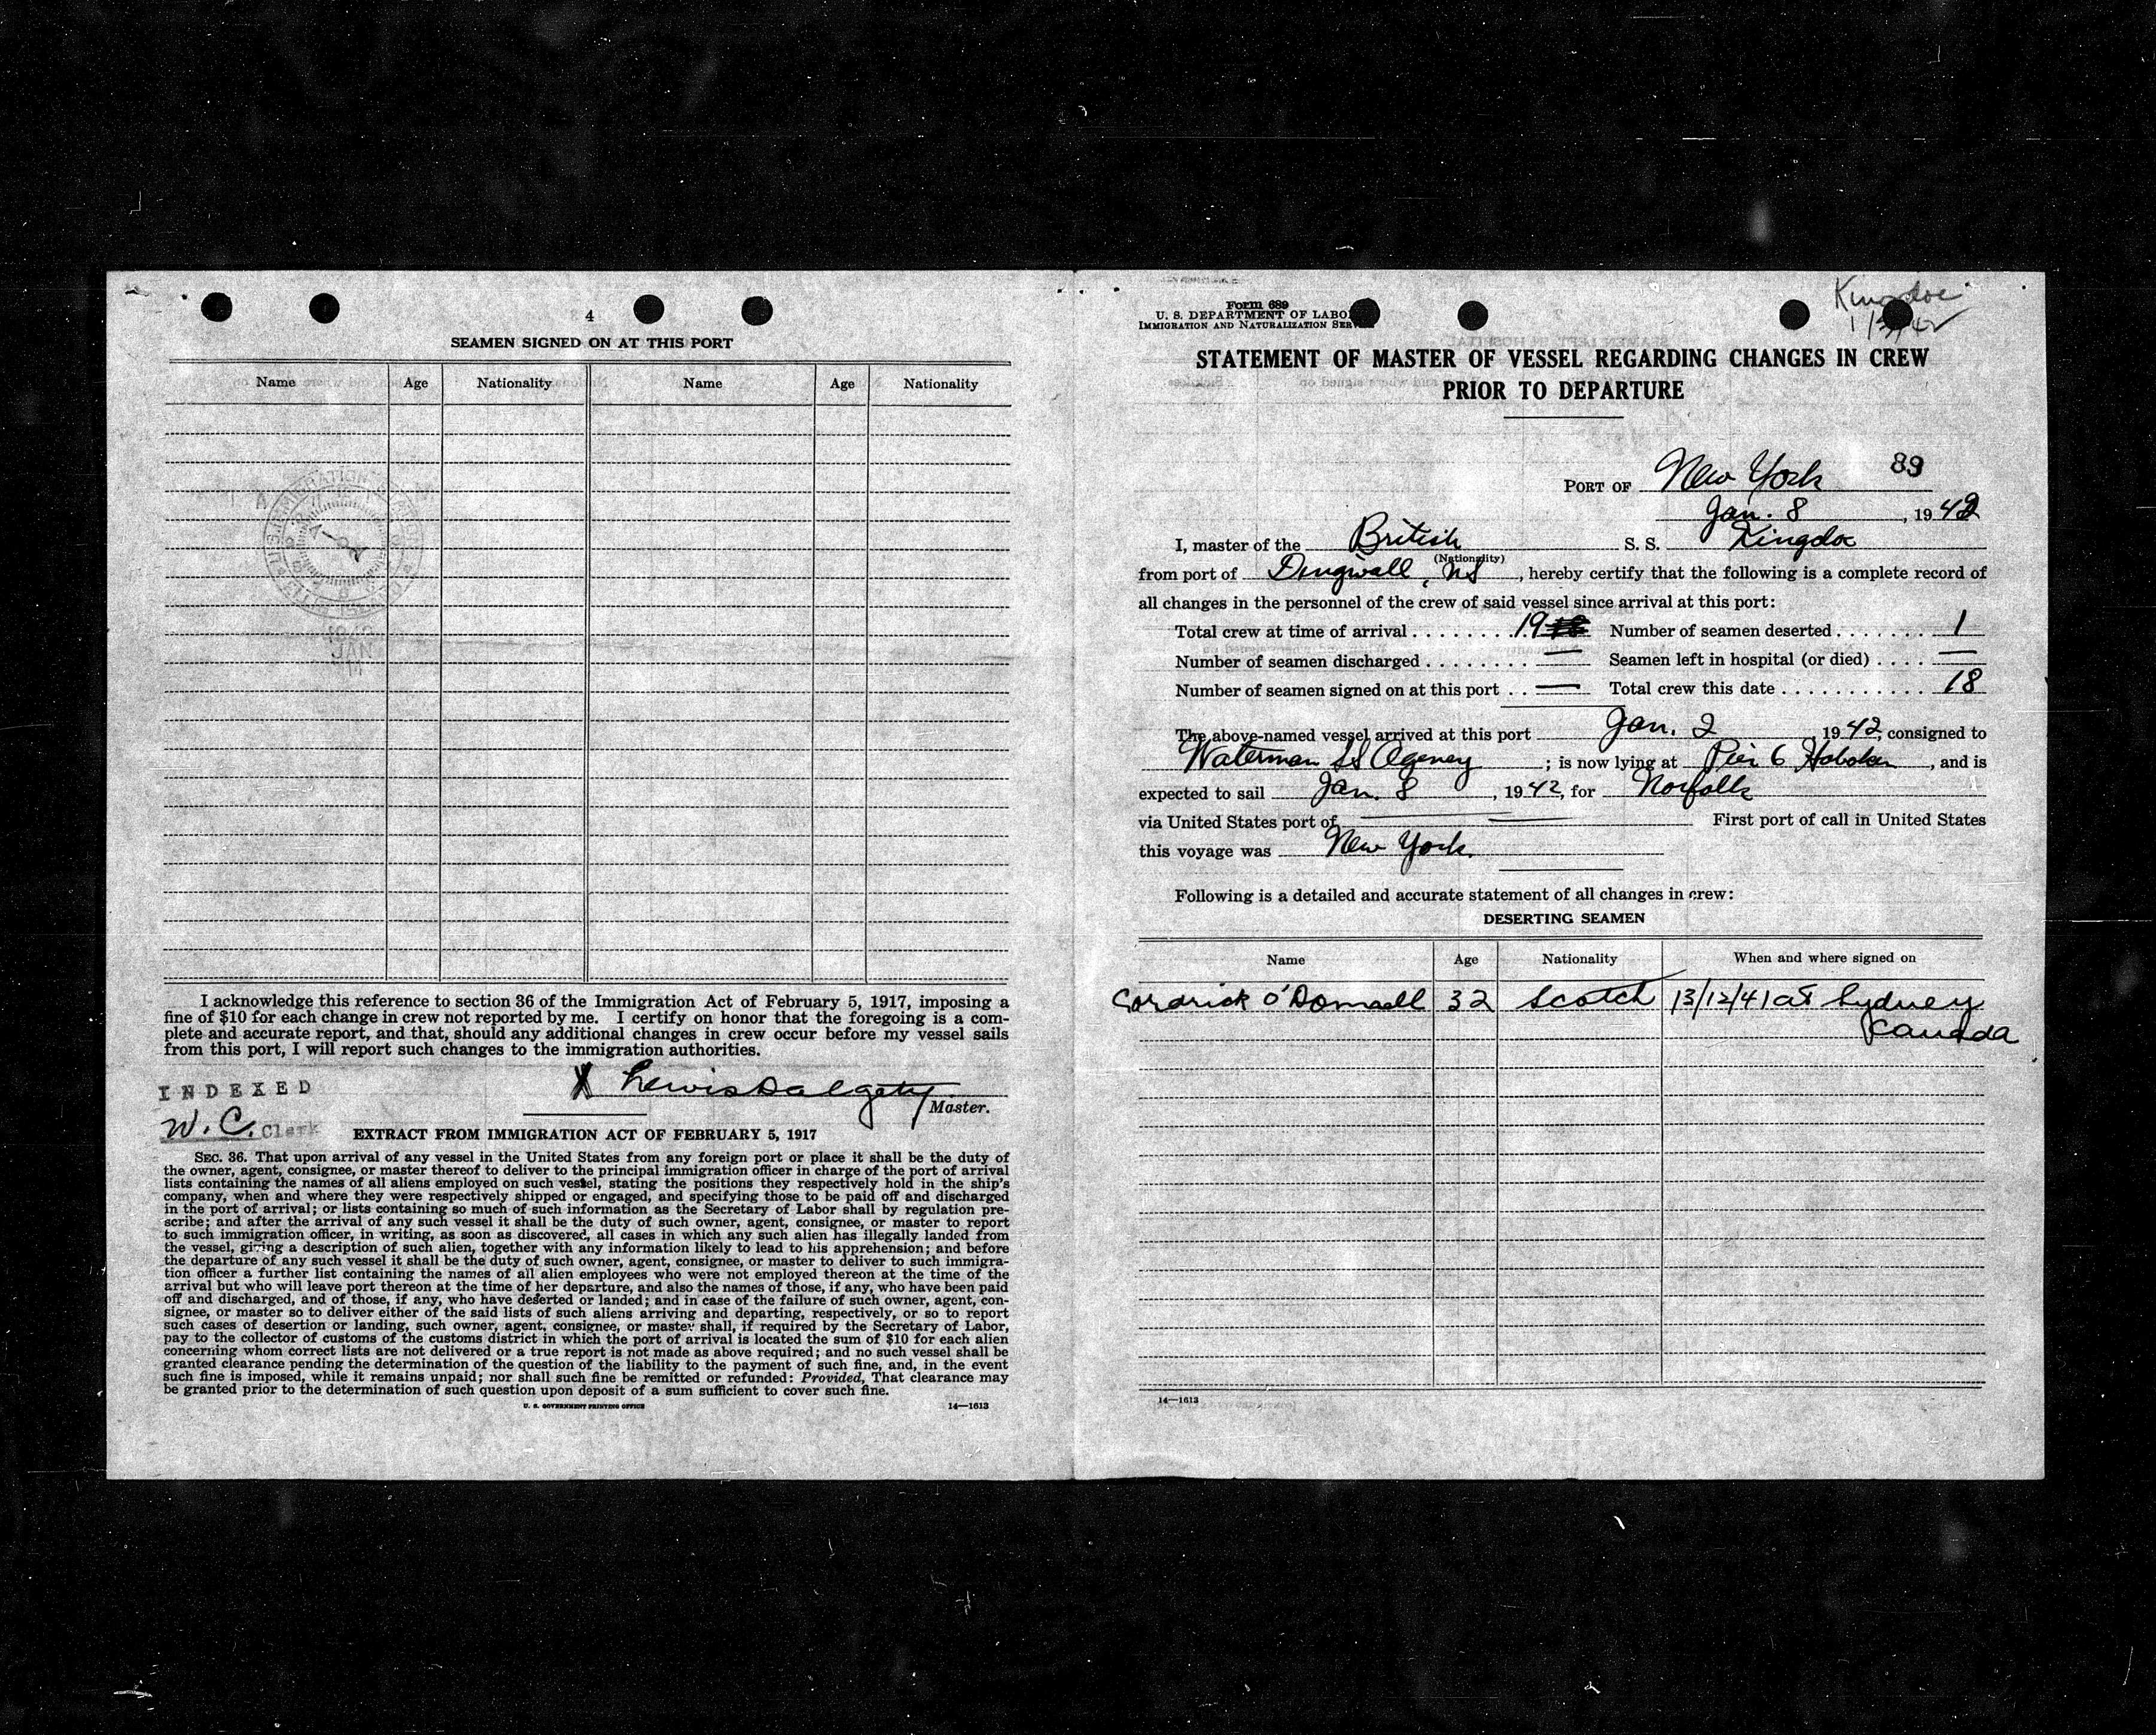 4
SEAMEN SIGNED ON AT THIS PORT
Name Age Nationality Name Age Nationality
I acknowledge this reference to section 36 of the Immigration Act of February 5, 1917, imposing a
fine of $10 for each change in crew not reported by me. I certify on honor that the foregoing is a com-
plete and accurate report, and that, should any additional changes in crew occur before my vessel sails
from this port, I will report such changes to the immigration authorities.
INDEXED
X Lewis Dalgety
Master.
W. C. Clerk
EXTRACT FROM IMMIGRATION ACT OF FEBRUARY 5, 1917
SEC. 36. That upon arrival of any vessel in the United States from any foreign port or place it shall be the duty of
the owner, agent, consignee, or master thereof to deliver to the principal immigration officer in charge of the port of arrival
lists containing the names of all aliens employed on such vessel, stating the positions they respectively hold in the ship's
company, when and where they were respectively shipped or engaged, and specifying those to be paid off and discharged
in the port of arrival; or lists containing so much of such information as the Secretary of Labor shall by regulation pre-
scribe; and after the arrival of any such vessel it shall be the duty of such owner, agent, consignee, or master to report
to such immigration officer, in writing, as soon as discovered, all cases in which any such alien has illegally landed from
the vessel, giving a description of such alien, together with any information likely to lead to his apprehension; and before
the departure of any such vessel it shall be the duty of such owner, agent, consignee, or master to deliver to such immigra-
tion officer a further list containing the names of all alien employees who were not employed thereon at the time of the
arrival but who will leave port thereon at the time of her departure, and also the names of those, if any, who have been paid
off and discharged, and of those, if any, who have deserted or landed; and in case of the failure of such owner, agent, con-
signee, or master so to deliver either of the said lists of such aliens arriving and departing, respectively, or so to report
such cases of desertion or landing, such owner, agent, consignee, or master shall, if required by the Secretary of Labor,
pay to the collector of customs of the customs district in which the port of arrival is located the sum of $10 for each alien
concerning whom correct lists are not delivered or a true report is not made as above required; and no such vessel shall be
granted clearance pending the determination of the question of the liability to the payment of such fine, and, in the event
such fine is imposed, while it remains unpaid; nor shall such fine be remitted or refunded: Provided, That clearance may
be granted prior to the determination of such question upon deposit of a sum sufficient to cover such fine.
U. S. GOVERNMENT PRINTING OFFICE 14—1613
Kingdoc
Form 689
U. S. DEPARTMENT OF LABOR
IMMIGRATION AND NATURALIZATION SERVICE
STATEMENT OF MASTER OF VESSEL REGARDING CHANGES IN CREW
PRIOR TO DEPARTURE
PORT OF New York 89
Jan. 8, 1942
I, master of the British S. S. Kingdoc
(Nationality)
from port of Dingwall, NS, hereby certify that the following is a complete record of
all changes in the personnel of the crew of said vessel since arrival at this port:
Total crew at time of arrival . . . . . . . . 19 Number of seamen deserted . . . . . . . 1
Number of seamen discharged . . . . . . . . — Seamen left in hospital (or died) . . . . —
Number of seamen signed on at this port . . — Total crew this date . . . . . . . . . . . . 18
The above-named vessel arrived at this port Jan. 2, 1942, consigned to
Waterman SS Agency; is now lying at Pier 6 Hoboken, and is
expected to sail Jan. 8, 1942, for Norfolk
via United States port of — — First port of call in United States
this voyage was New York.
Following is a detailed and accurate statement of all changes in crew:
DESERTING SEAMEN
Name Age Nationality When and where signed on
Cordrick O'Donnell 32 Scotch 13/12/41 at Sydney
Canada
14—1613